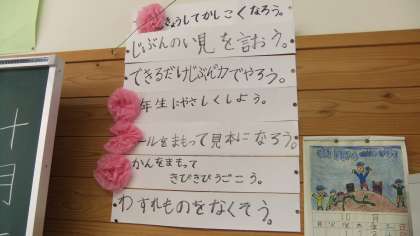 きょうしてかしこくなろう。
じぶんのい見を言おう。
できるだけじぶん力でやろう。
年生にやさしくしよう。
ールをまもって見本になろう。
かんをまもって
きびきびうごこう。
わすれものをなくそう。
十月